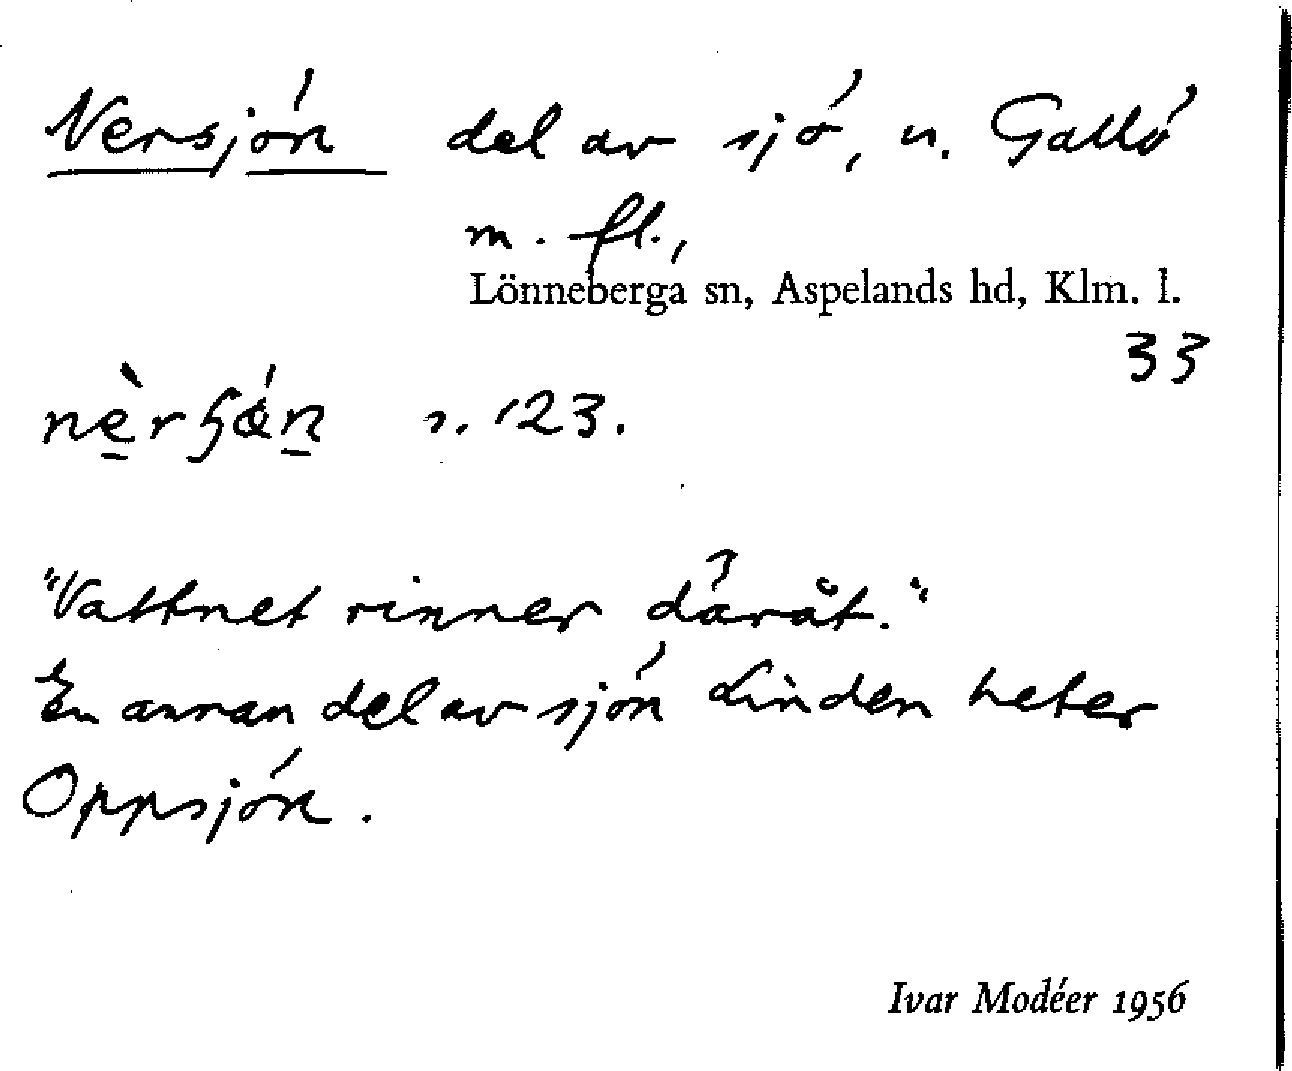 Nersjön del av sjö, u. Gallö
m. fl.,
Lönneberga sn, Aspelands hd, Klm. l.
33
s. 123.
"Vattnet rinner däråt."
En annan del av sjön Linden heter
Oppsjön.
Ivar Modéer 1956